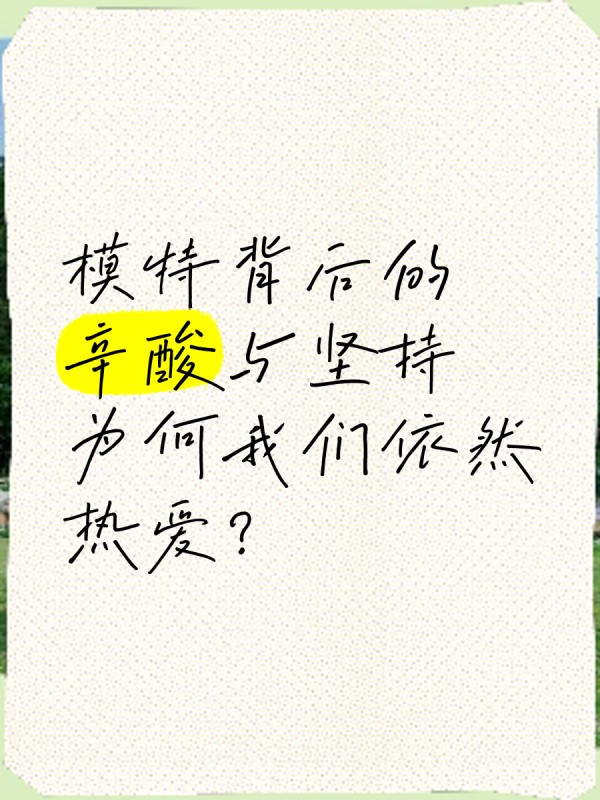 模特背后的
辛酸与坚持
为何我们依然
热爱？